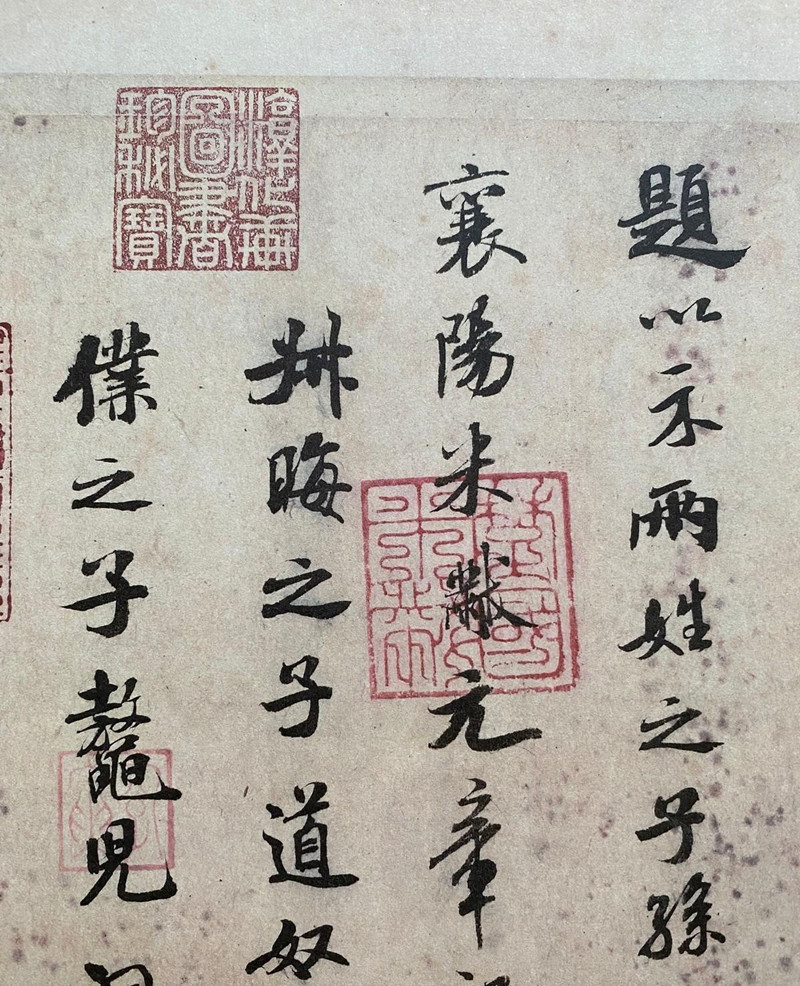 題以示兩姓之子孫
襄陽米黻元章
叔晦之子道奴
僕之子鼇兒
淳化軒
圖書
珍秘寶